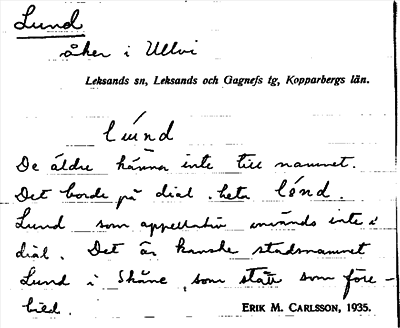 Lund
åker i Ullvi
Leksands sn, Leksands och Gagnefs tg, Kopparbergs län.
lúnd
De äldre känna inte till namnet.
Det borde på dial. heta lónd.
Lund som appellativ används inte i
dial. Det är kanske stadsnamnet
Lund i Skåne, som stått som före-
bild.
ERIK M. CARLSSON, 1935.